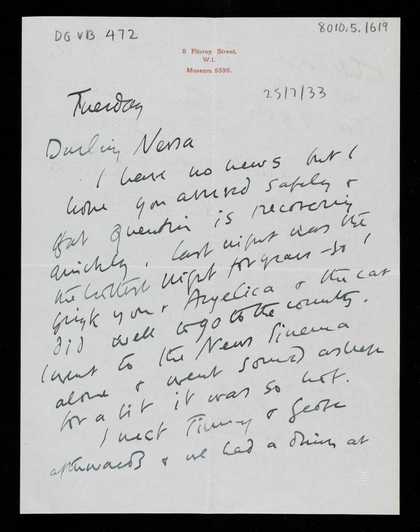 DG VB 472
8010.5.1619
8 Fitzroy Street,
W.1.
Museum 6596.
Tuesday
25/7/33
Darling Nessa
I have no news but I
hope you arrived safely &
that Quentin is recovering
quickly. Last night was the
the hottest night for years – so I
think you & Angelica & the cat
did well to go to the country.
I went to the News Cinema
alone & went sound asleep
for a bit it was so hot.
I met Timmy & George
afterwards & we had a drink at